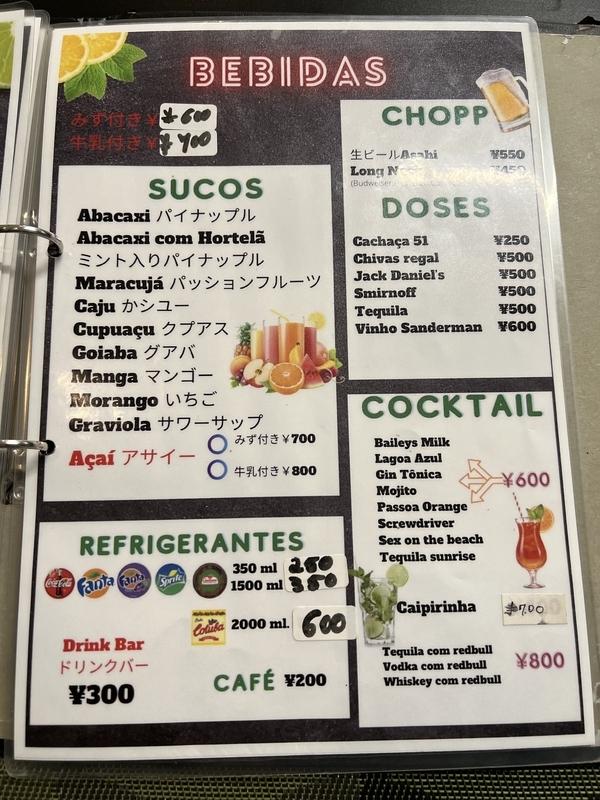 BEBIDAS
みず付き¥ ¥600
牛乳付き¥ ¥700
SUCOS
Abacaxi パイナップル
Abacaxi com Hortelã
ミント入りパイナップル
Maracujá パッションフルーツ
Caju かシユー
Cupuaçu クプアス
Goiaba グアバ
Manga マンゴー
Morango いちご
Graviola サワーサップ
Açaí アサイー
みず付き¥700
牛乳付き¥800
REFRIGERANTES
Coca-Cola Fanta Fanta Sprite
350 ml 250
1500 ml 350
Cotuba 2000 ml. 600
Drink Bar
ドリンクバー
¥300
CAFÉ ¥200
CHOPP
生ビールAsahi ¥550
Long ¥450
(Budweiser
DOSES
Cachaça 51 ¥250
Chivas regal ¥500
Jack Daniel's ¥500
Smirnoff ¥500
Tequila ¥500
Vinho Sanderman ¥600
COCKTAIL
Baileys Milk
Lagoa Azul
Gin Tônica
Mojito
Passoa Orange
Screwdriver
Sex on the beach
Tequila sunrise
¥600
Caipirinha ¥700
Tequila com redbull
Vodka com redbull
Whiskey com redbull
¥800